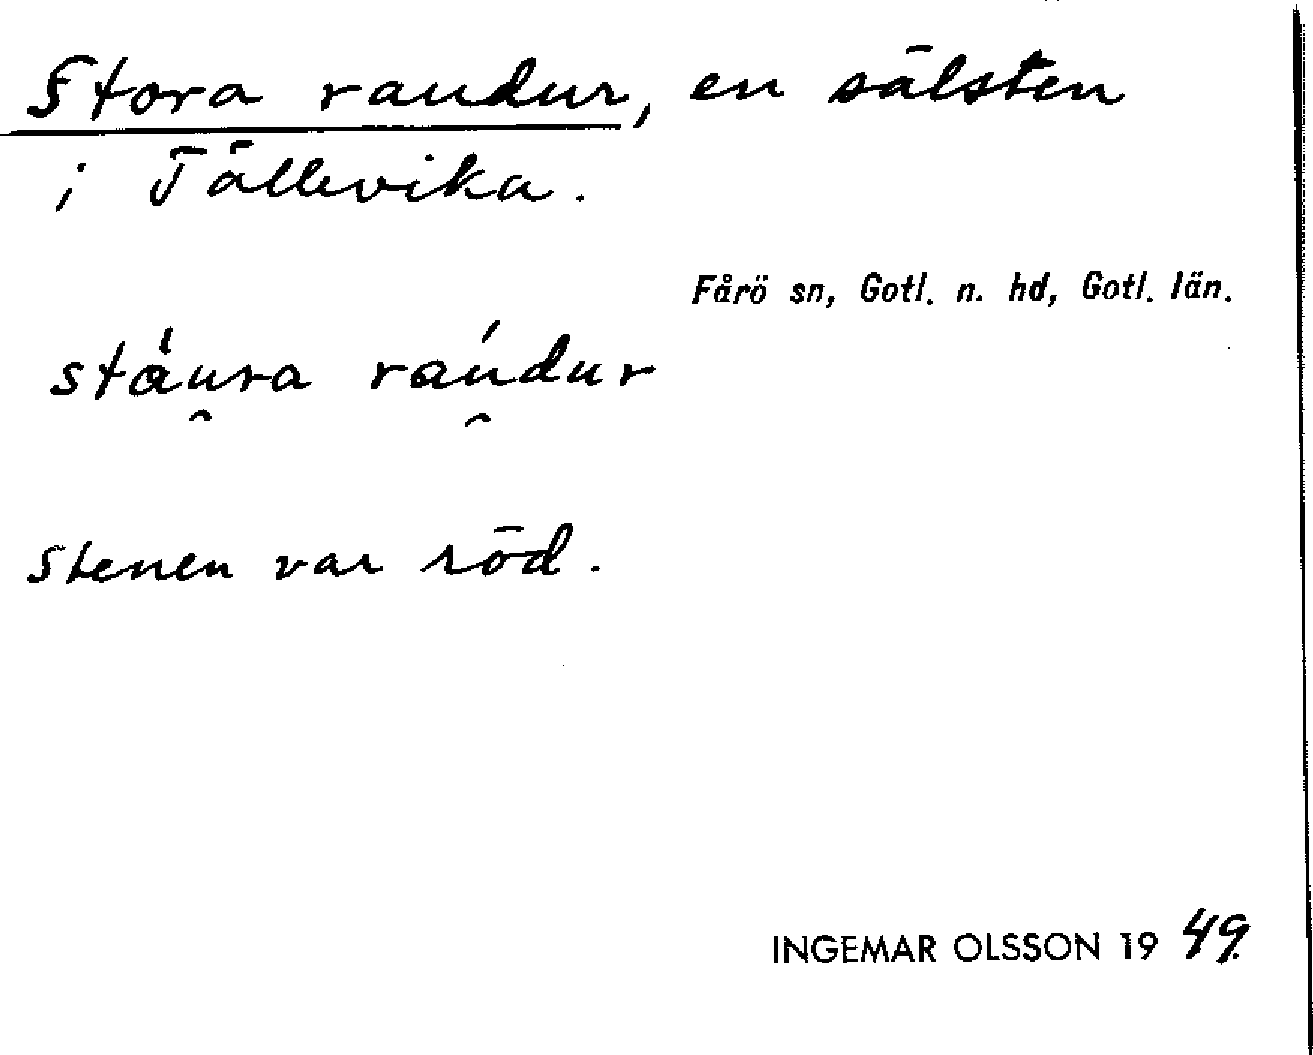 Stora raudur, en sälsten
i Tällevika.
Fårö sn, Gotl. n. hd, Gotl. län.
stäura
Stenen var röd.
INGEMAR OLSSON 1949.